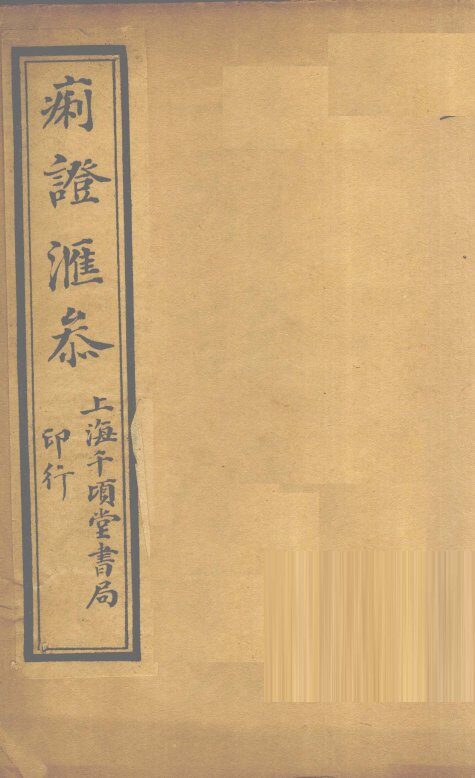 痢證滙叅
上海千頃堂書局
印行